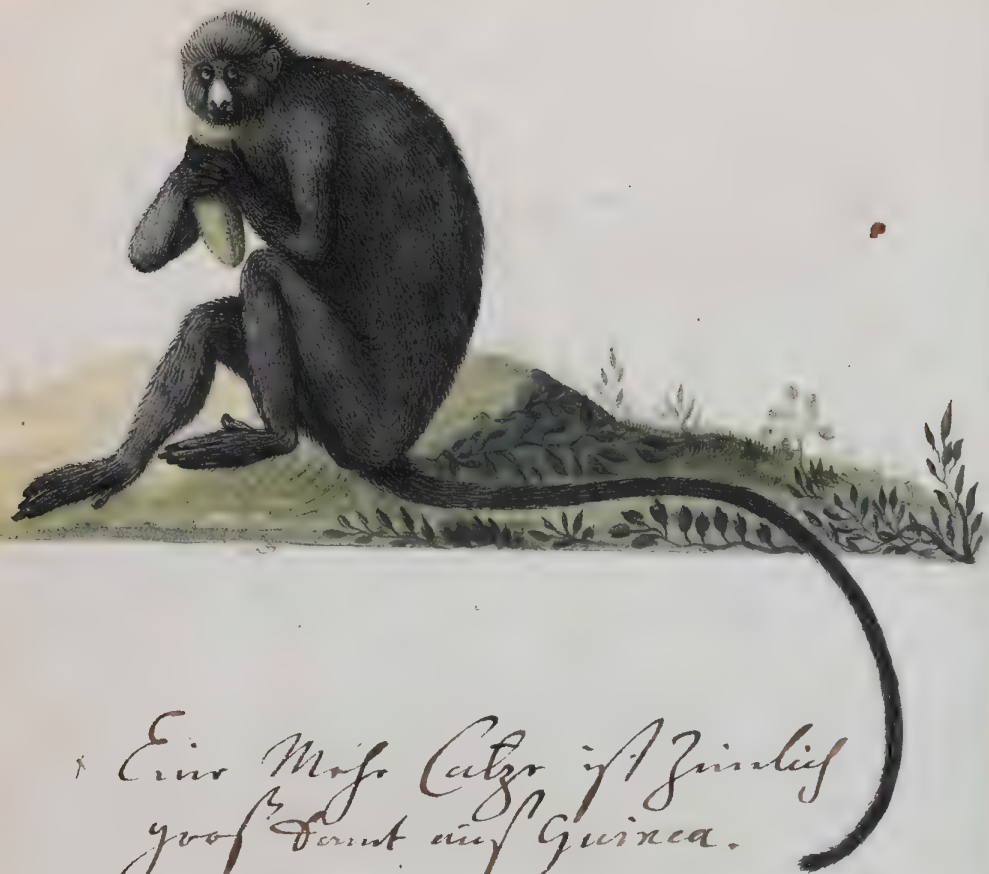 Eine Mehr Catze ist Zimlich
groß komt auß Guinea.